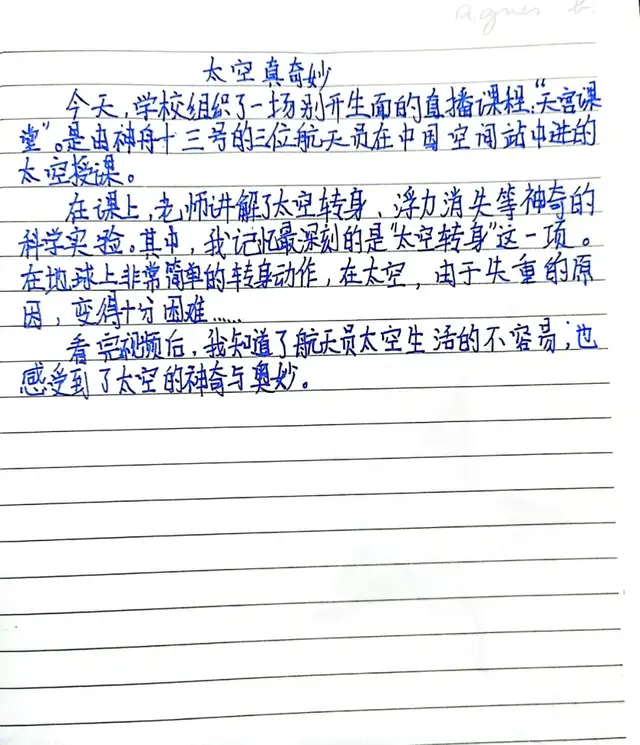 agnes
太空真奇妙
今天,学校组织了一场别开生面的直播课程:“天宫课
堂”。是由神舟十三号的三位航天员在中国空间站中进的
太空授课。
在课上,老师讲解了太空转身、浮力消失等神奇的
科学实验。其中,我记忆最深刻的是“太空转身”这一项。
在地球上非常简单的转身动作,在太空,由于失重的原
因,变得十分困难……
看完视频后,我知道了航天员太空生活的不容易;也
感受到了太空的神奇与奥妙。